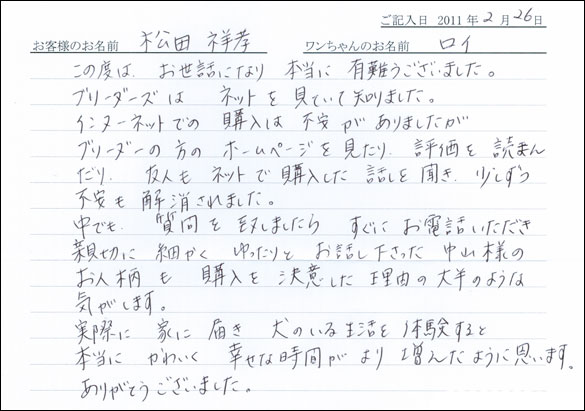 ご記入日 2011年2月26日
お客様のお名前 松田 祥孝 ワンちゃんのお名前 ロイ
この度は、お世話になり 本当に 有難うございました。
ブリーダーズは ネットを見ていて知りました。
インターネットでの 購入は 不安がありましたが
ブリーダーの方の ホームページを見たり、評価を 読まん
だり、友人も ネットで購入した 話しを聞き、少しずつ
不安も 解消されました。
中でも、質問を しましたら すぐに お電話いただき
親切に 細かく ゆったりと お話し下さった 中山様の
お人柄も 購入を 決意した 理由の大半のような
気がします。
実際に 家に届き 犬のいる生活を 体験すると
本当に かわいく 幸せな時間が より 増んだように思います。
ありがとうございました。